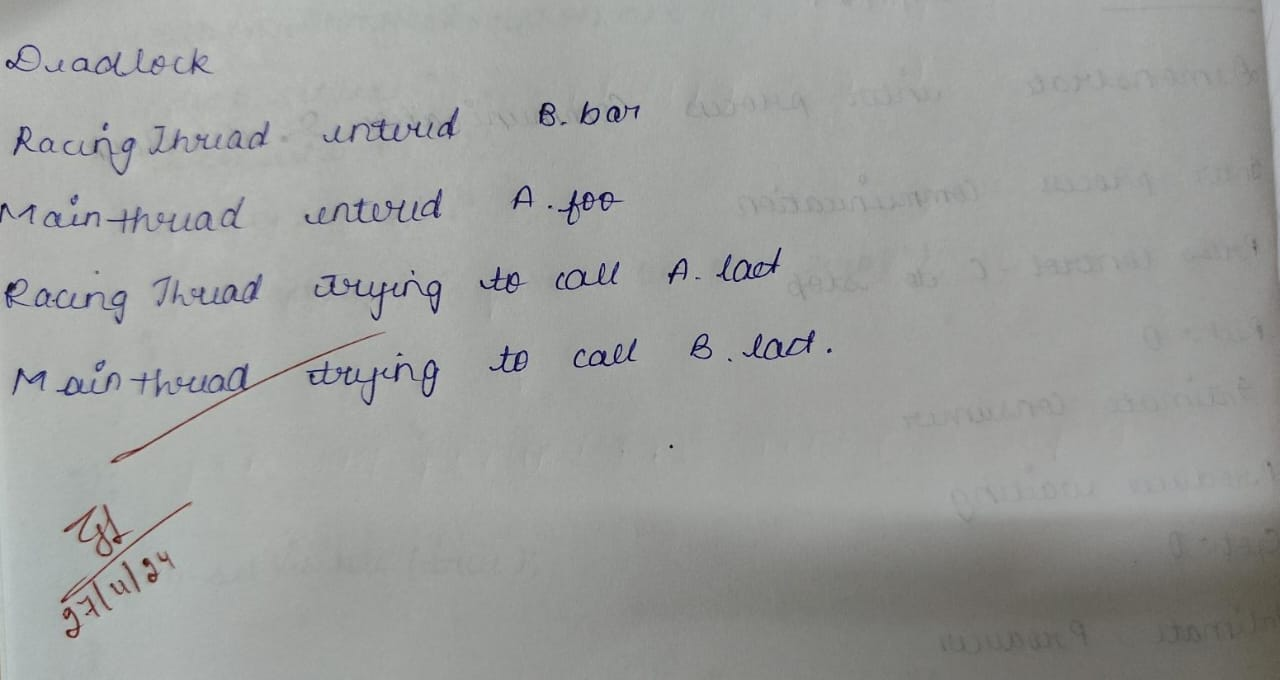 Deadlock
Racing Thread entered B. bar
Main thread entered A. foo
Racing Thread trying to call A. last
Main thread trying to call B. last.
27/11/24